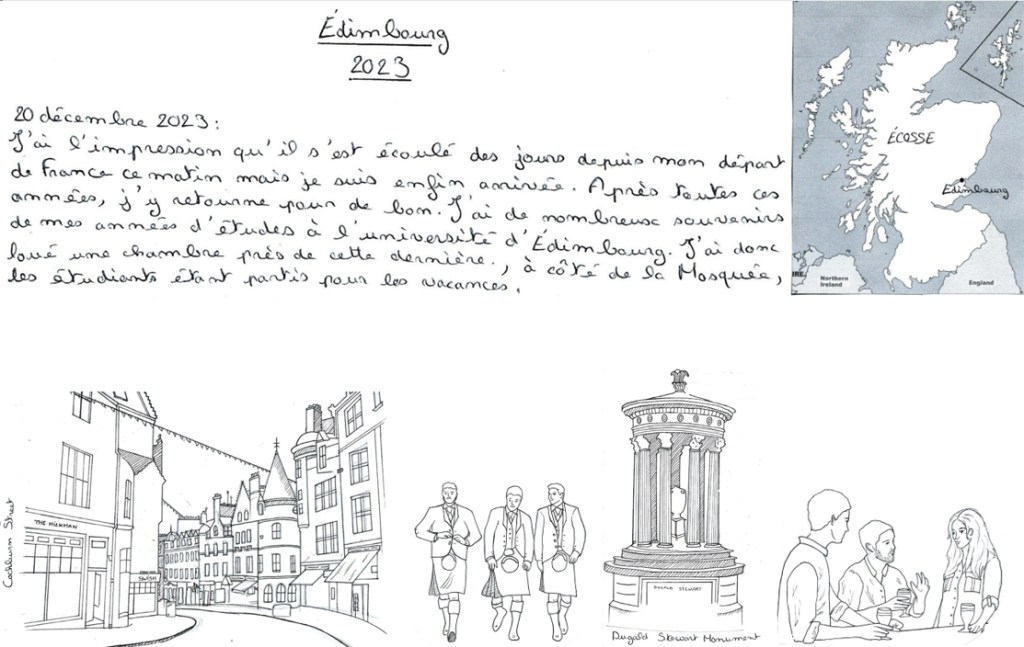 Édimbourg
2023
20 décembre 2023 :
J'ai l'impression qu'il s'est écoulé des jours depuis mon départ
de France ce matin mais je suis enfin arrivée. Après toutes ces
années, j'y retourne pour de bon. J'ai de nombreux souvenirs
de mes années d'études à l'université d'Édimbourg. J'ai donc
loué une chambre près de cette dernière., à côté de la Mosquée,
les étudiants étant partis pour les vacances.
ÉCOSSE
Édimbourg
IRE.
Northern
Ireland
England
Cockburn Street
THE MILKMAN
SWISH
DUGALD STEWART
Dugald Stewart Monument